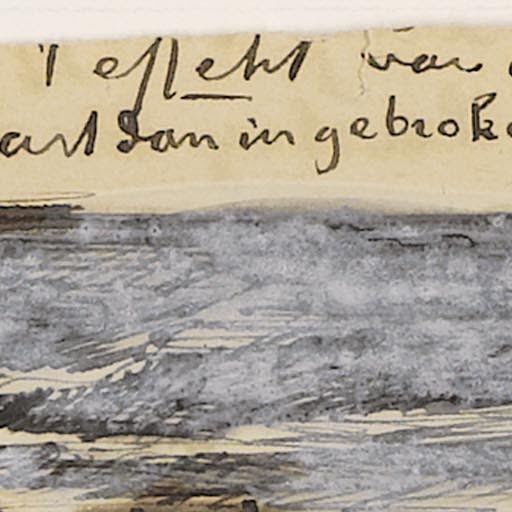 't effekt van
dan in gebrok